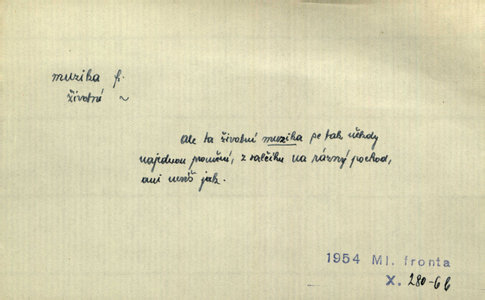 muzika f.
životní ~
Ale ta životní muzika se tak někdy
najednou promění, z valčíku na rázný pochod,
ani nevíš jak.
1954 Ml. fronta
X. 280-6b